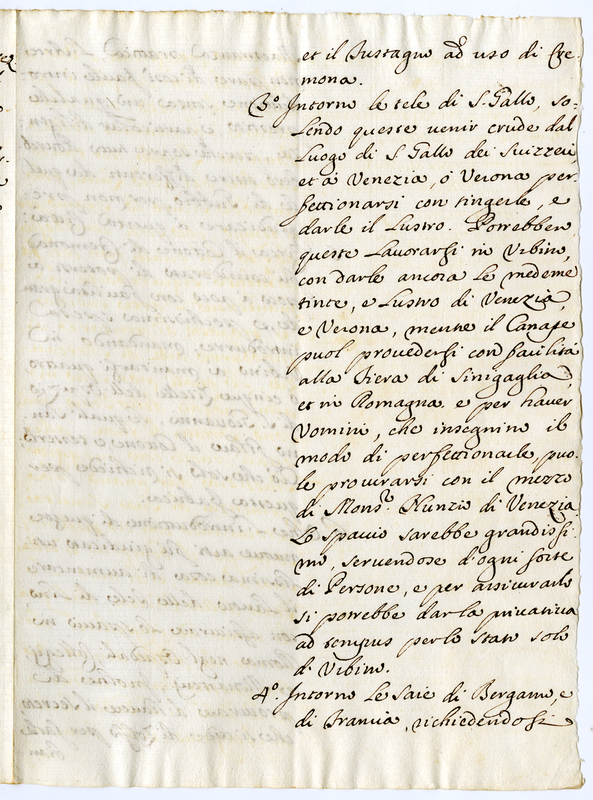 et il Fustagno ad uso di Cre-
mona.
3º. Intorno le tele di S. Gallo, so-
lendo queste venir crude dal
Luogo di S. Gallo dei Suizzeri
et à Venezia, ò Verona per-
fettionarsi con tingerle, e
darle il Lustro. Potrebbero
queste Lavorarsi in Urbino,
con darle ancora Le medeme
tinte, e Lustro di Venezia,
e Verona, mentre il Canape
puol provedersi con facilità
alla Fiera di Sinigaglia,
et in Romagna. e per haver
Uomini, che insegnino il
modo di perfettionarle, puo-
le procurarsi con il mezzo
di Monsr. Nunzio di Venezia
Lo spaccio sarebbe grandissi-
mo, servendose d'ogni sorte
di Persone, e per assicurarlo
si potrebbe dar la privativa
ad tempus per lo Stato solo
di Urbino.
4º. Intorno Le Saie di Bergamo, e
di Francia, richiedendosi